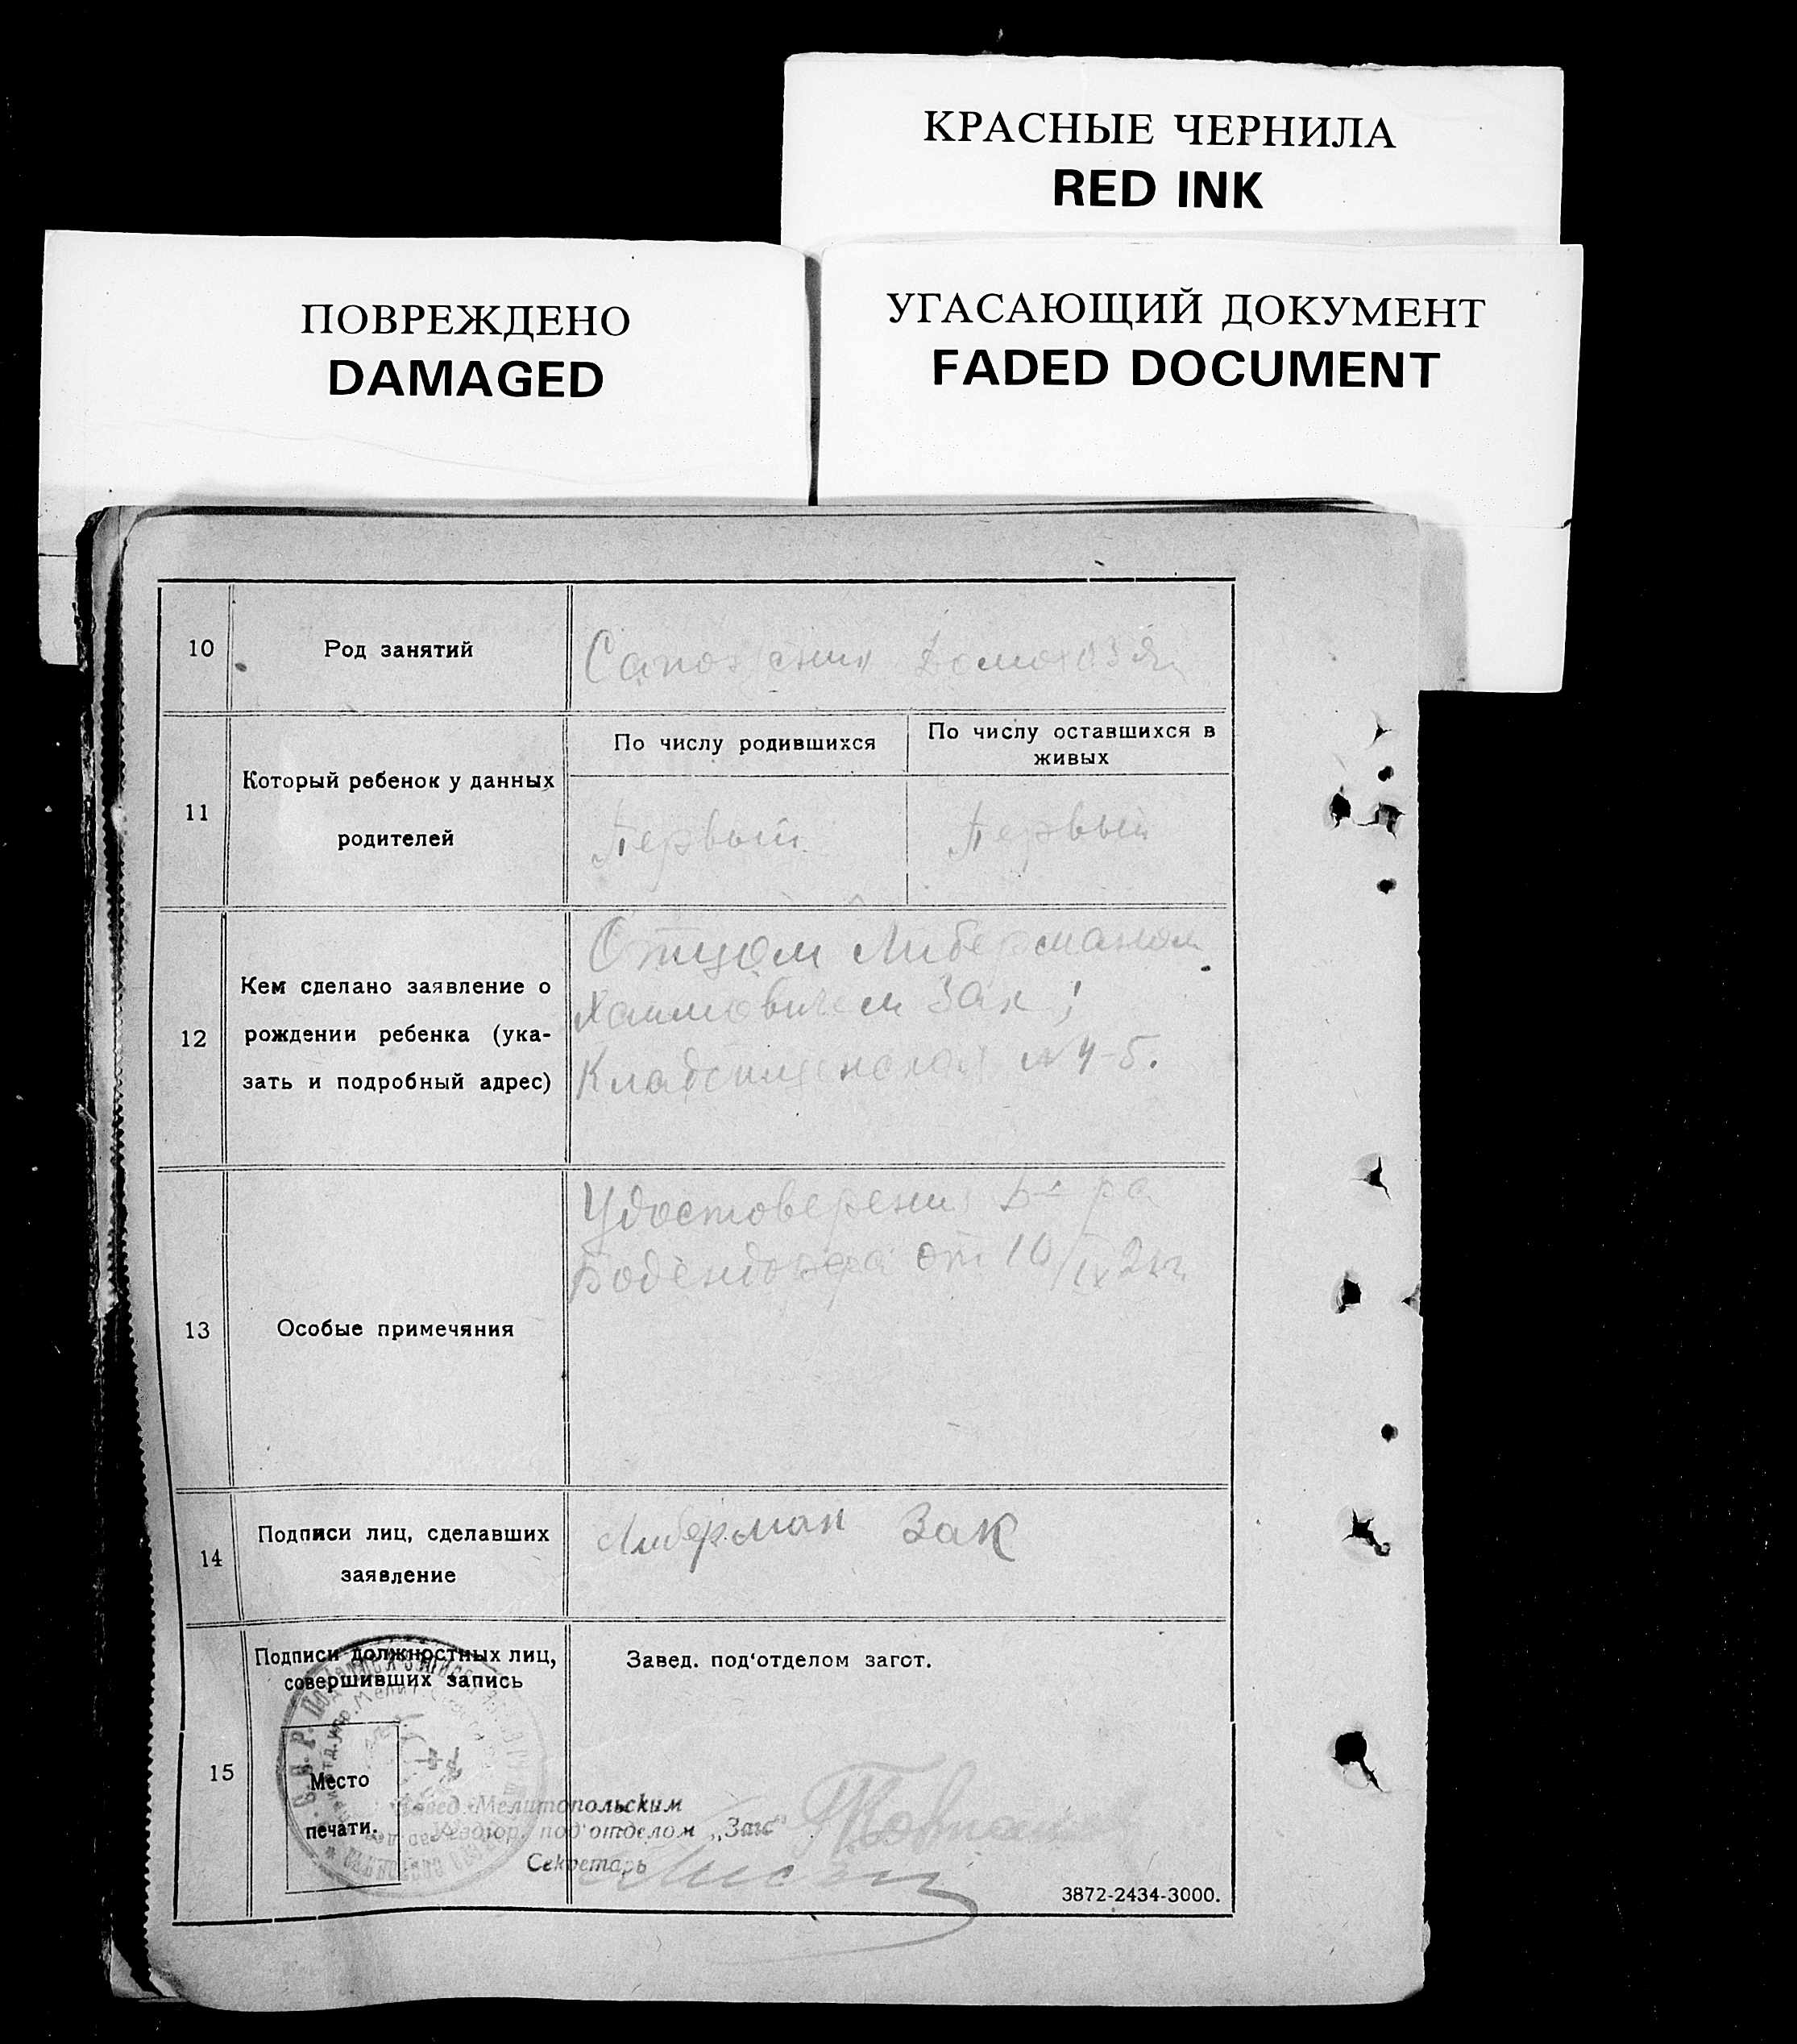 КРАСНЫЕ ЧЕРНИЛА
RED INK
ПОВРЕЖДЕНО
DAMAGED
УГАСАЮЩИЙ ДОКУМЕНТ
FADED DOCUMENT
10
Род занятий
Сапожник Домохозя
11
Который ребенок у данных
родителей
По числу родившихся
По числу оставшихся в
живых
Первый
Первый
12
Кем сделано заявление о
рождении ребенка (ука-
зать и подробный адрес)
Отцом Либерманом
Хаимовичем Зак;
Кладбищенская №4-Б.
13
Особые примечяния
Удостоверения Д-ра
от 10/IX
14
Подписи лиц, сделавших
заявление
Либерман Зак
15
Подписи должностных лиц,
совершивших запись
Место
печати.
Завед. под‘отделом загот.
Завед. Мелитопольским
под‘отделом „Загс“
Секретарь
3872-2434-3000.